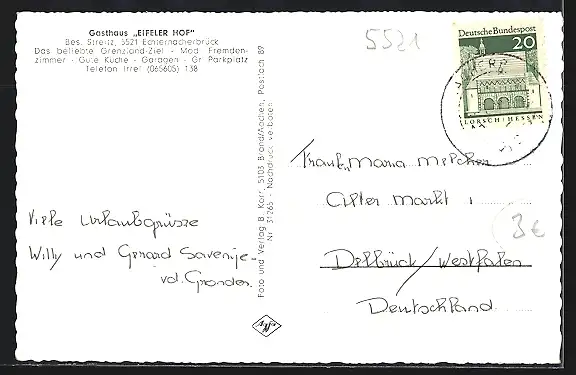 Gasthaus „EIFELER HOF"
Bes. Streitz, 5521 Echternacherbrück
Das beliebte Grenzland-Ziel - Mod. Fremden-
zimmer - Gute Küche - Garagen - Gr. Parkplatz
Telefon Irrel (065605) 138
5521
Deutsche Bundespost
20
LORSCH/HESSEN
Foto und Verlag B. Korr, 5103 Brand/Aachen, Postfach 87
Nr. 31265 - Nachdruck verboten
Viele Urlaubgrüsze
Willy und Gerard Savenije-
vd. Gronden.
Maria
Alter Markt 1
3€
Delbrück/Westfalen
Deutschland
Agfa